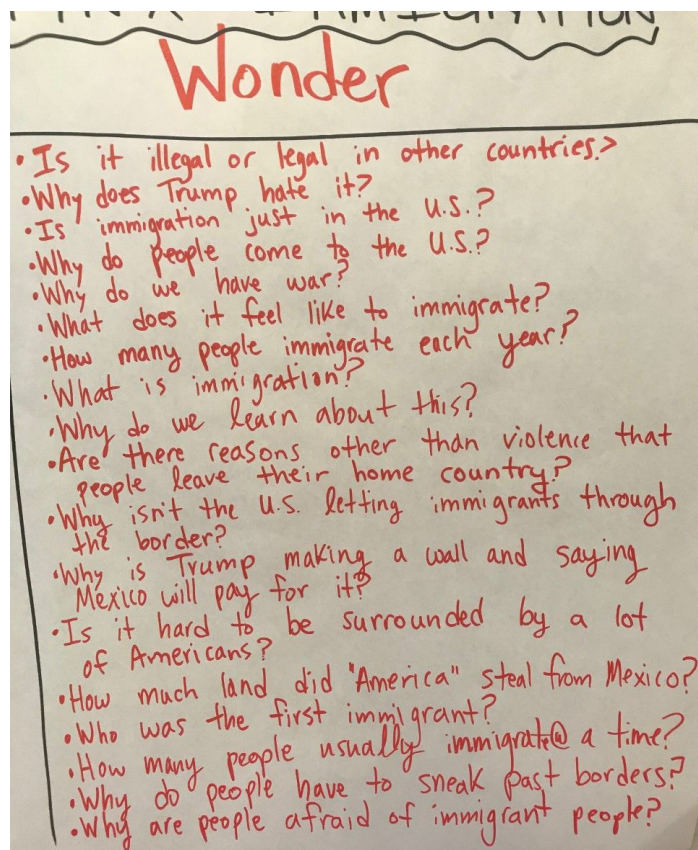 IMMIGRATION
Wonder
• Is it illegal or legal in other countries?
• Why does Trump hate it?
• Is immigration just in the U.S.?
• Why do people come to the U.S.?
• Why do we have war?
• What does it feel like to immigrate?
• How many people immigrate each year?
• What is immigration?
• Why do we learn about this?
• Are there reasons other than violence that
people leave their home country?
• Why isn't the U.S. letting immigrants through
the border?
• Why is Trump making a wall and saying
Mexico will pay for it?
• Is it hard to be surrounded by a lot
of Americans?
• How much land did "America" steal from Mexico?
• Who was the first immigrant?
• How many people usually immigrate @ a time?
• Why do people have to sneak past borders?
• Why are people afraid of immigrant people?